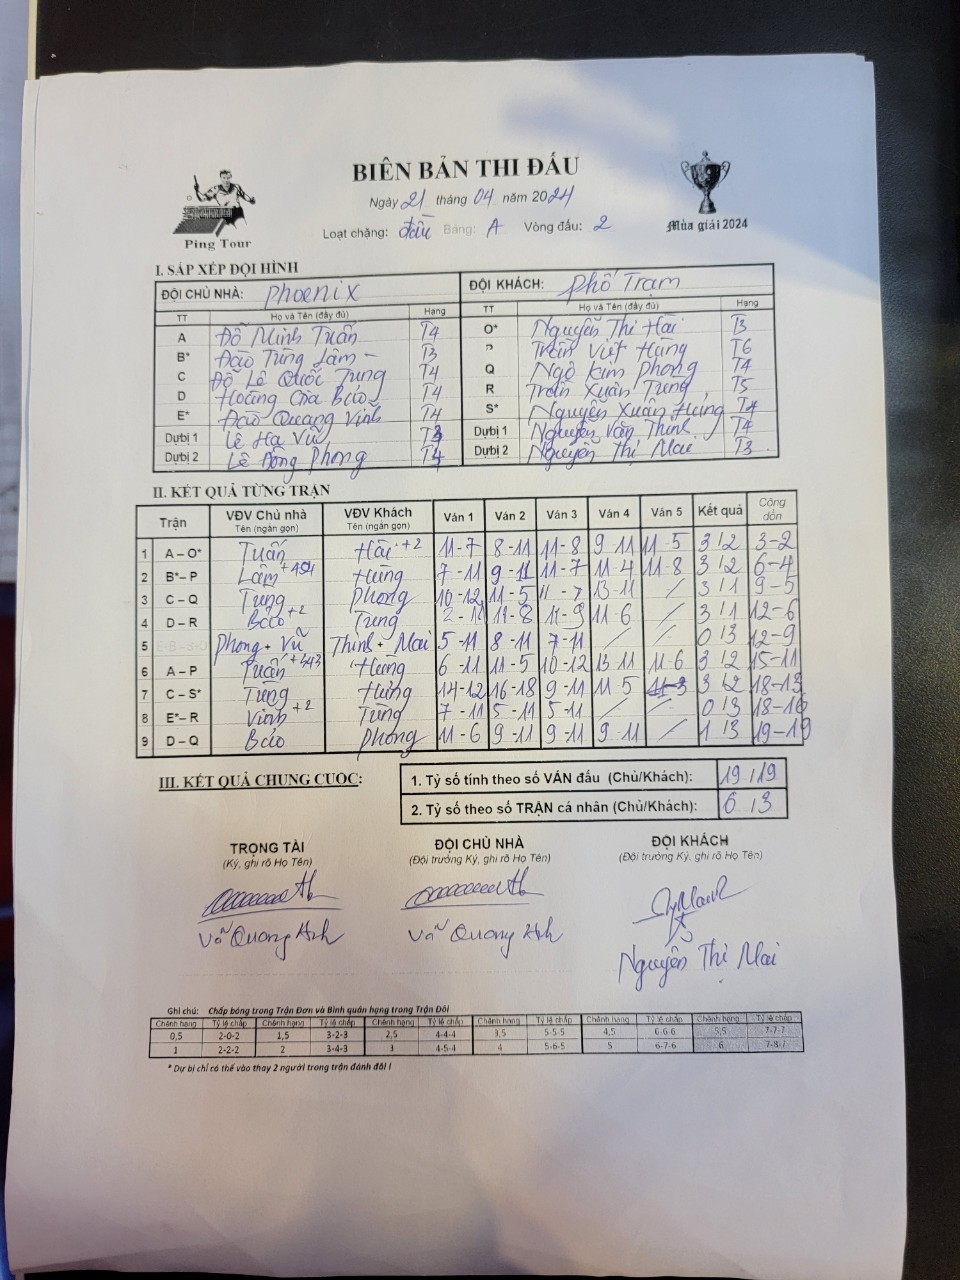 BIÊN BẢN THI ĐẤU
Ngày 21 tháng 04 năm 2024
Loạt chặng: đầu Bảng: A Vòng đấu: 2
Ping Tour
Mùa giải 2024
I. SẮP XẾP ĐỘI HÌNH
ĐỘI CHỦ NHÀ: Phoenix ĐỘI KHÁCH: Phố Trạm
TT Họ và Tên (đầy đủ) Hạng TT Họ và Tên (đầy đủ) Hạng
A Đỗ Minh Tuấn T4 O* Nguyễn Thị Hải T3
B* Đào Tùng Lâm T3 P Trần Việt Hùng T6
C Đỗ Lê Quốc Tung T4 Q Ngô Kim Phong T4
D Hoàng Gia Bảo T4 R Trần Xuân Tùng T5
E* Đào Quang Vinh T4 S* Nguyễn Xuân Hưng T4
Dự bị 1 Lê Hạ Vũ T3 Dự bị 1 Nguyễn Văn Thinh T4
Dự bị 2 Lê Đông Phong T4 Dự bị 2 Nguyễn Thị Mai T3
II. KẾT QUẢ TỪNG TRẬN
Trận VĐV Chủ nhà VĐV Khách Ván 1 Ván 2 Ván 3 Ván 4 Ván 5 Kết quả Cộng dồn
Tên (ngắn gọn) Tên (ngắn gọn)
1 A – O* Tuấn Hải +2 11-7 8-11 11-8 9-11 11-5 3/2 3-2
2 B* – P Lâm +454 Hùng 7-11 9-11 11-7 11-4 11-8 3/2 6-4
3 C – Q Tùng Phong 10-12 11-5 11-7 13-11 / 3/1 9-5
4 D – R Bảo +2 Tùng 2-11 11-8 11-9 11-6 / 3/1 12-6
5 Phong + Vũ Thinh + Mai 5-11 8-11 7-11 / / 0/3 12-9
6 A – P Tuấn +343 Hùng 6-11 11-5 10-12 13-11 11-6 3/2 15-11
7 C – S* Tùng Hưng 14-12 16-18 9-11 11-5 11-3 3/2 18-13
8 E* – R Vinh +2 Tùng 7-11 5-11 5-11 / / 0/3 18-16
9 D – Q Bảo Phong 11-6 9-11 9-11 9-11 / 1/3 19-19
III. KẾT QUẢ CHUNG CUỘC:
1. Tỷ số tính theo số VÁN đấu (Chủ/Khách): 19/19
2. Tỷ số theo số TRẬN cá nhân (Chủ/Khách): 6/3
TRỌNG TÀI ĐỘI CHỦ NHÀ ĐỘI KHÁCH
(Ký, ghi rõ Họ Tên) (Đội trưởng Ký, ghi rõ Họ Tên) (Đội trưởng Ký, ghi rõ Họ Tên)
Võ Quang Anh Võ Quang Anh Nguyễn Thị Mai
Ghi chú: Chấp bóng trong Trận Đơn và Bình quân hạng trong Trận Đôi
Chênh hạng Tỷ lệ chấp Chênh hạng Tỷ lệ chấp Chênh hạng Tỷ lệ chấp Chênh hạng Tỷ lệ chấp Chênh hạng Tỷ lệ chấp Chênh hạng Tỷ lệ chấp
0,5 2-0-2 1,5 3-2-3 2,5 4-4-4 3,5 5-5-5 4,5 6-6-6 5,5 7-7-7
1 2-2-2 2 3-4-3 3 4-5-4 4 5-6-5 5 6-7-6 6 7-8-7
* Dự bị chỉ có thể vào thay 2 người trong trận đánh đôi !